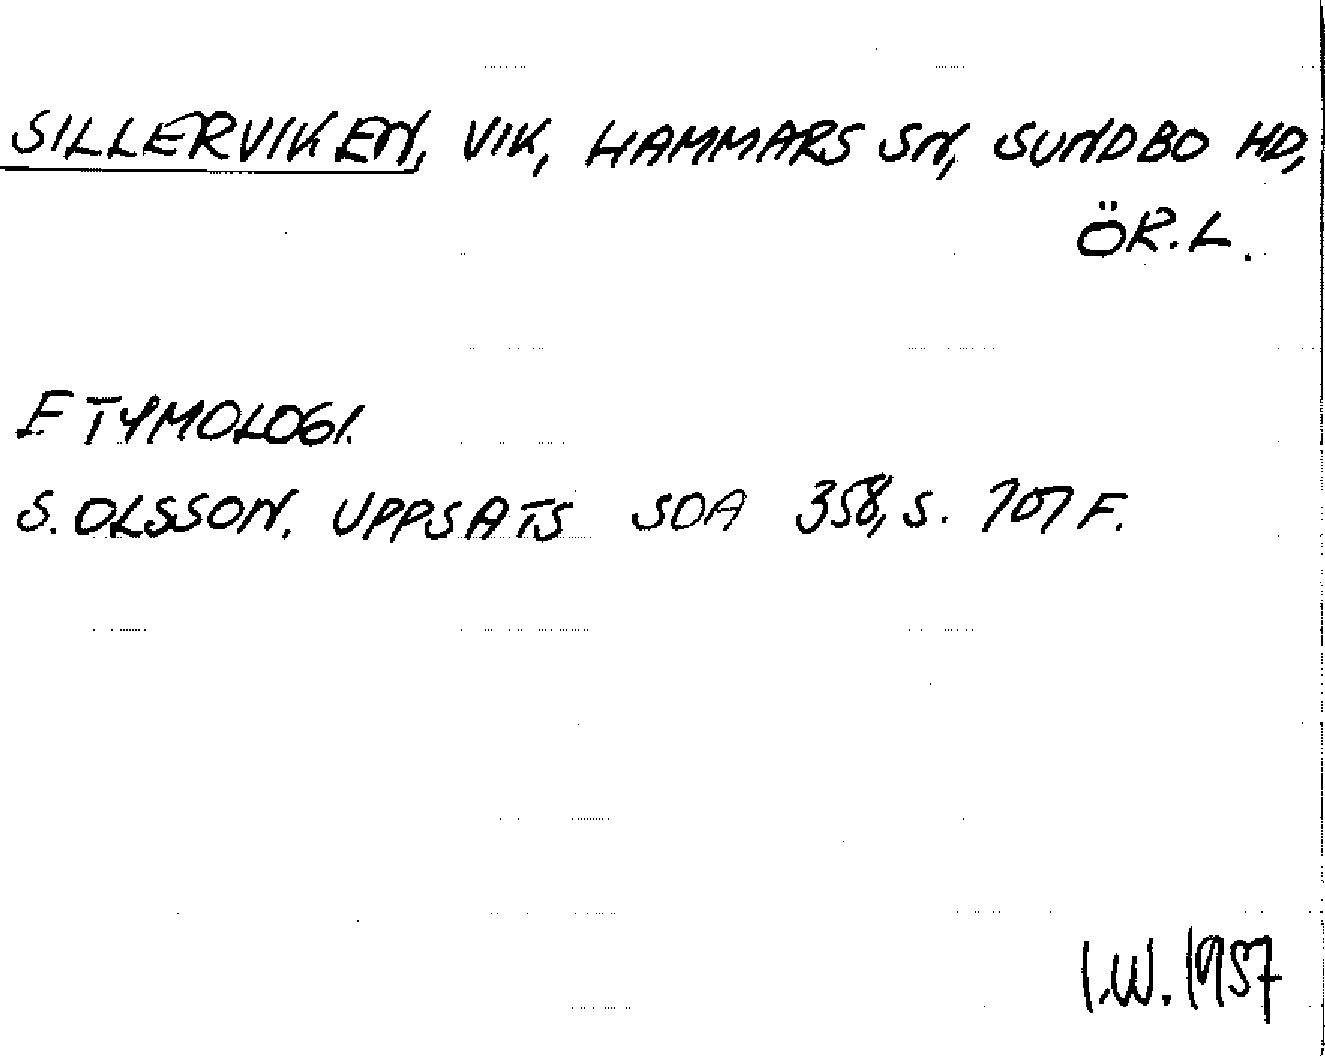 SILLERVIKEN, VIK, HAMMARS SN, SUNDBO HD,
ÖR.L.
ETYMOLOGI.
S. OLSSON. UPPSATS SOA 358, S. 107 F.
I.W. 1957